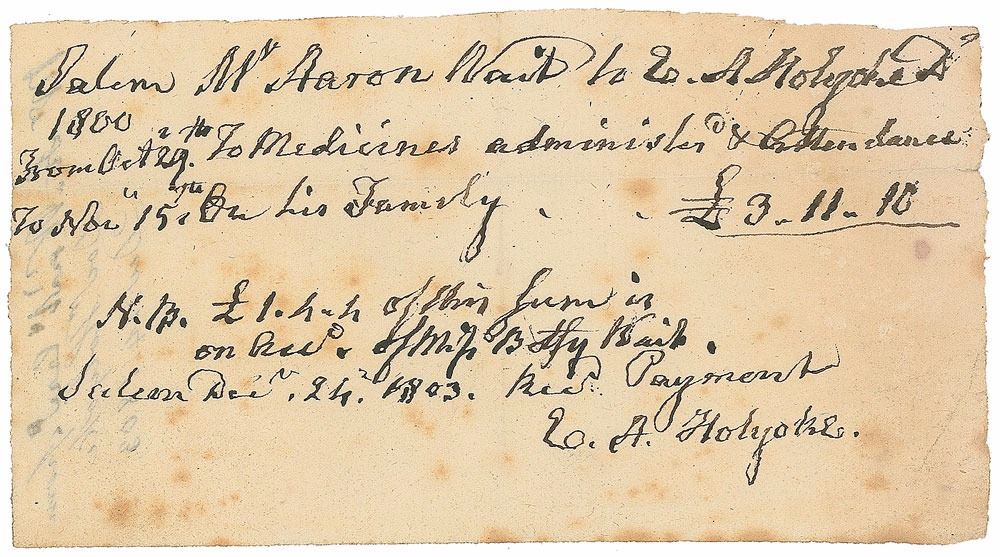 Salem Mr Aaron Wait to E. A Holyoke Dr
1800
From Oct 29th. To Medicines administerd & Attendance
To Novr 15th. On his Family . . £ 3 .. 11 .. 10
N.B. £ 1.4.4 of this Sum is
on Acct. of Miss Betsy Wait.
Salem Decr. 24. 1803. Recd. Payment
E. A. Holyoke.